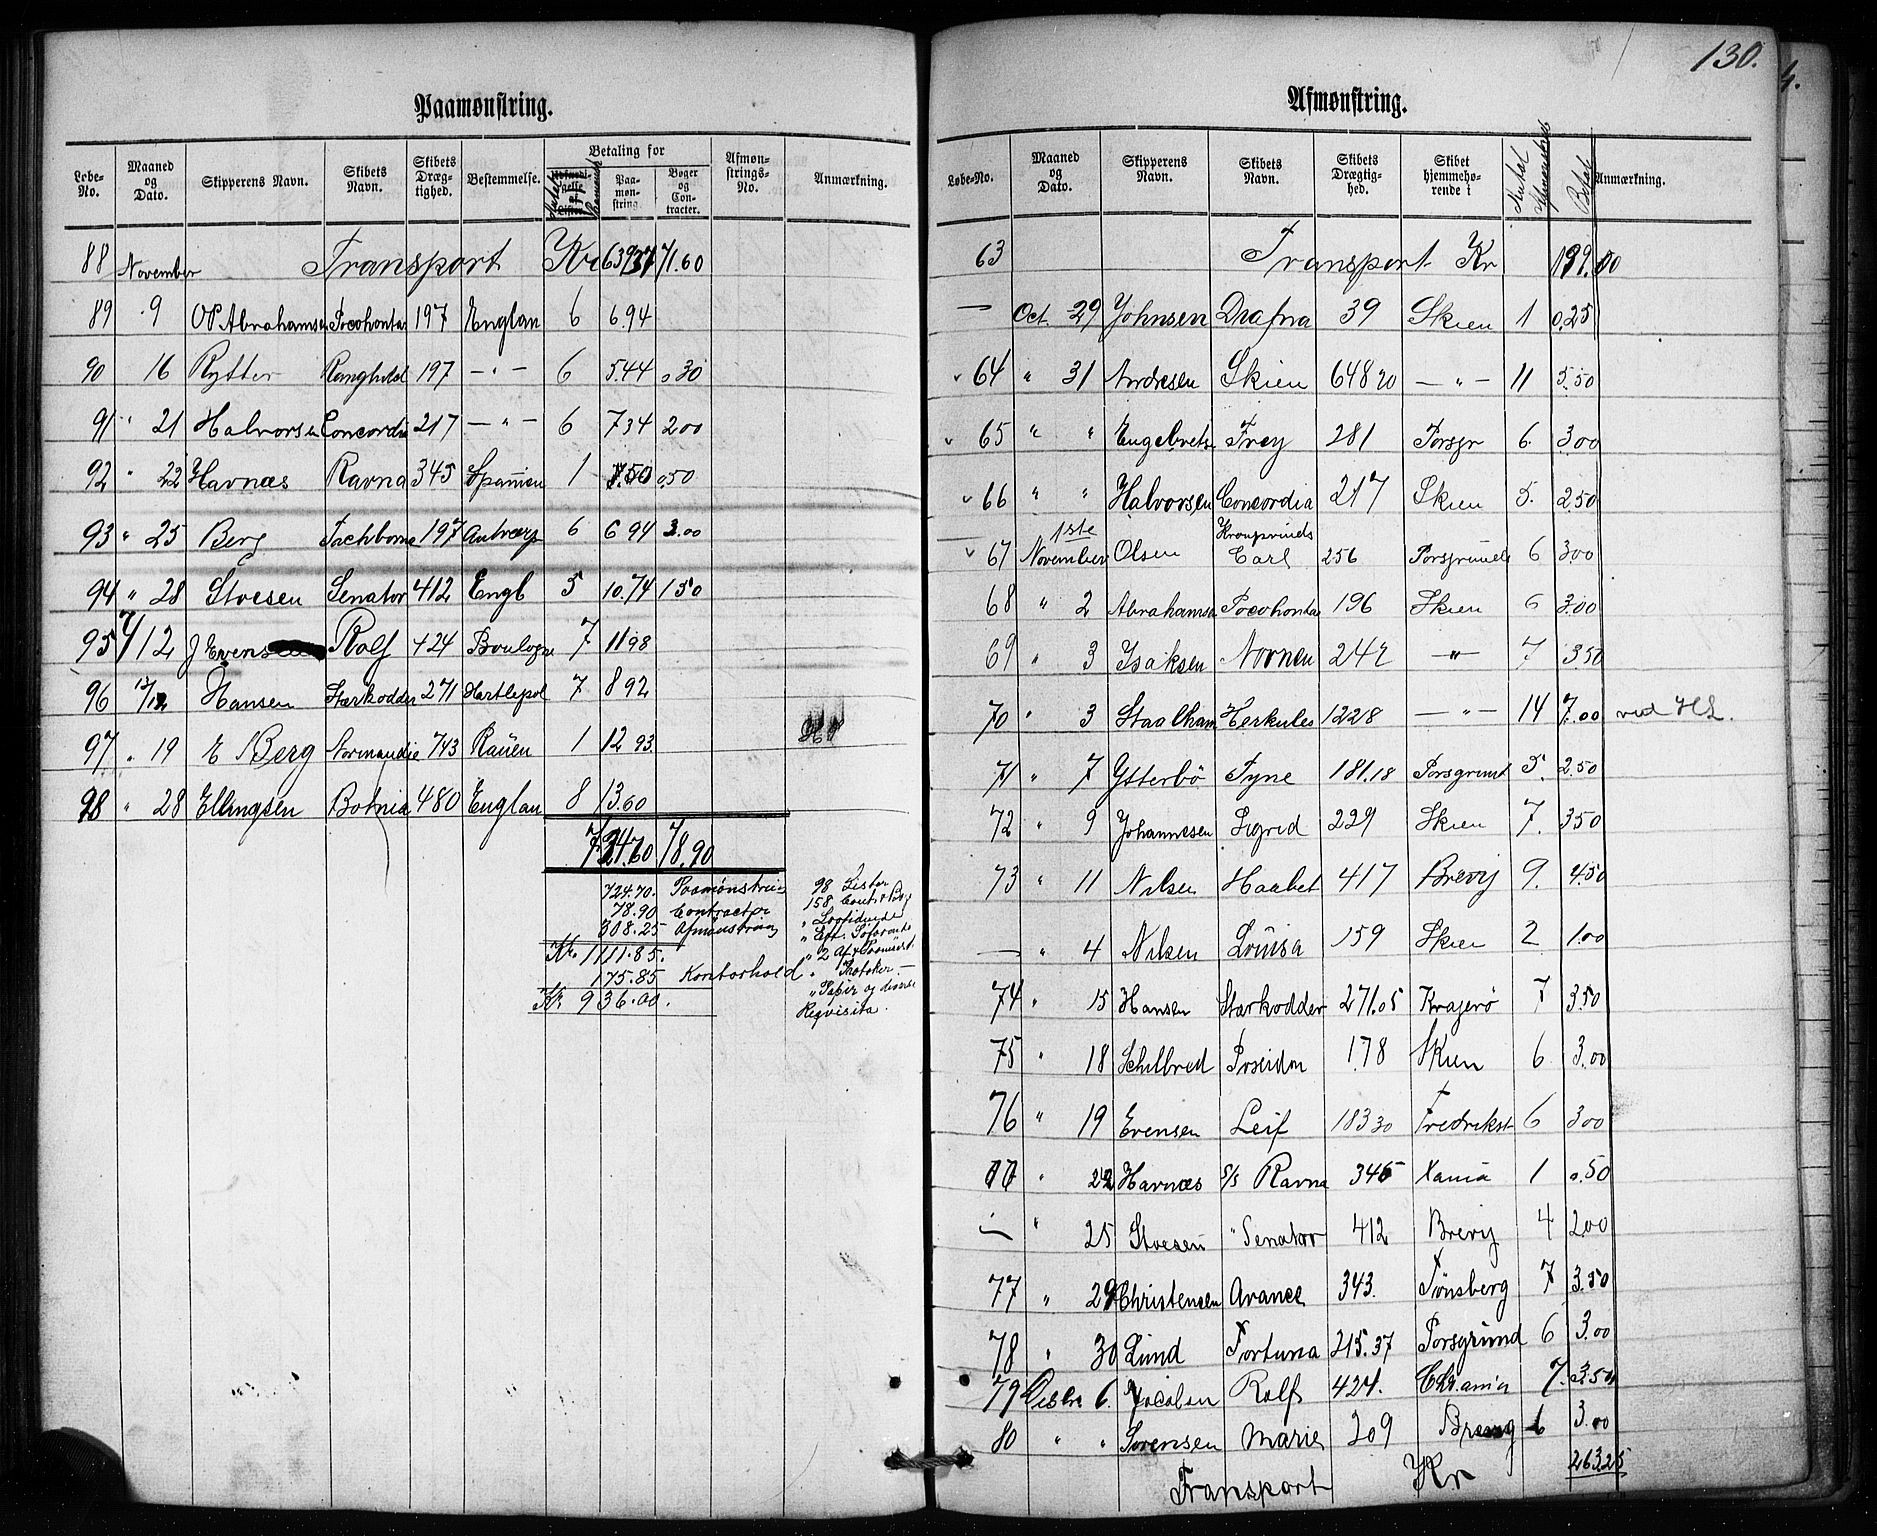 130.
Paamønstring.
Løbe-No. Maaned og Dato. Skipperens Navn. Skibets Navn. Skibets Dræg-tighed. Bestemmelse. Betaling for Paa-møn-string. Bøger og Con-tracter. Afmøn-strings-No. Anmærkning.
88 November Transport Kr 639,37 71.60
89 9 OP Abrahamsen Pocohontas 197 Englan 6 6.94
90 16 Rytter Ranghild 197 — " — 6 5.44 0.30
91 " 21 Halvorsen Concordia 217 — " — 6 7 34 2 00
92 " 22 Havnæs Ravna 345 Spanien 1 7.50 0.50
93 " 25 Berg 197 Antwerp 6 6 94 3.00
94 " 28 Stvesen Senator 412 Engl 5 10.74 1 50
95 7/12 J Evensen Rolf 424 Boulogne 7 11 98
96 12/12 Hansen Starkodder 271 Hartlepol 7 8 92
97 " 19 E Berg Normandie 743 Rauen 1 12 93.
98 " 28 Ellingsen Botnia 480 Englan 8 13.60
724 70 78.90
724.70. Paamønstring 98 Lister
78.90 Contracter 158 Contr
308.25 Afmønstring "
Kr. 1111.85. " 2
175.85 Kontorhold " Protoker.
Kr. 936.00. " Papir og diverse
Reqvisita.
Afmønstring.
Løbe-No. Maaned og Dato. Skipperens Navn. Skibets Navn. Skibets Drægtig-hed. Skibet hjemmehø-rende i Antal Afmønstrede Betalt Anmærkning.
63 Transport Kr 199.00
— Oct. 29 Johnsen Drafna 39 Skien 1 0.25
64 " 31 Andresen Skien 648 20 — " — 11 5.50
65 " " Engebrets Frey 281 Porsgr 6. 3.00
66 " " Halvorsen Concordia 217 Skien 5. 2.50
67 1ste November Olsen Kronprinds Carl 256 Porsgrund 6 3.00
68 " 2 Abrahamsen Pocohontas 196 Skien 6 3.00
69 " 3 Isaksen Nornen 242 — " — 7 3 50
70 " 3 Staalham Herkules 1228 — " — 14 7.00 ved HL.
71 " 7 Ytterbö Tyne 181.18 Porsgrunt 5. 2.50
72 " 9 Johannesen Sigrid 229 Skien 7. 3 50
73 " 11 Nilsen Haabet 417 Brevig 9. 4.50
— " 4 Nilsen Louisa 159 Skien 2 1.00
74 " 15 Hansen Starkodder 271.05 Kragerö 7 3.50
75 " 18 Schilbred Poseidon 178 Skien 6 3.00
76 " 19 Evensen Leif 183 30 Fredrikst 6 3 00
" 22 Havnæs S/S Ravna 345 Xania 1 0.50
— " 25 Stvesen " Senator 412 Brevig 4 2.00
77 " 29 Christensen Avance 343. Tönsberg 7 3.50
78 " 30 Lund Fortuna 215.37 Porsgrund 6 3.00
79 Decbr 6. Jacobsen Rolf 424. Chr.ania 7. 3.50
80 " " Sørensen Marie 209 Brevig 6 3.00
Transport Kr 263.25